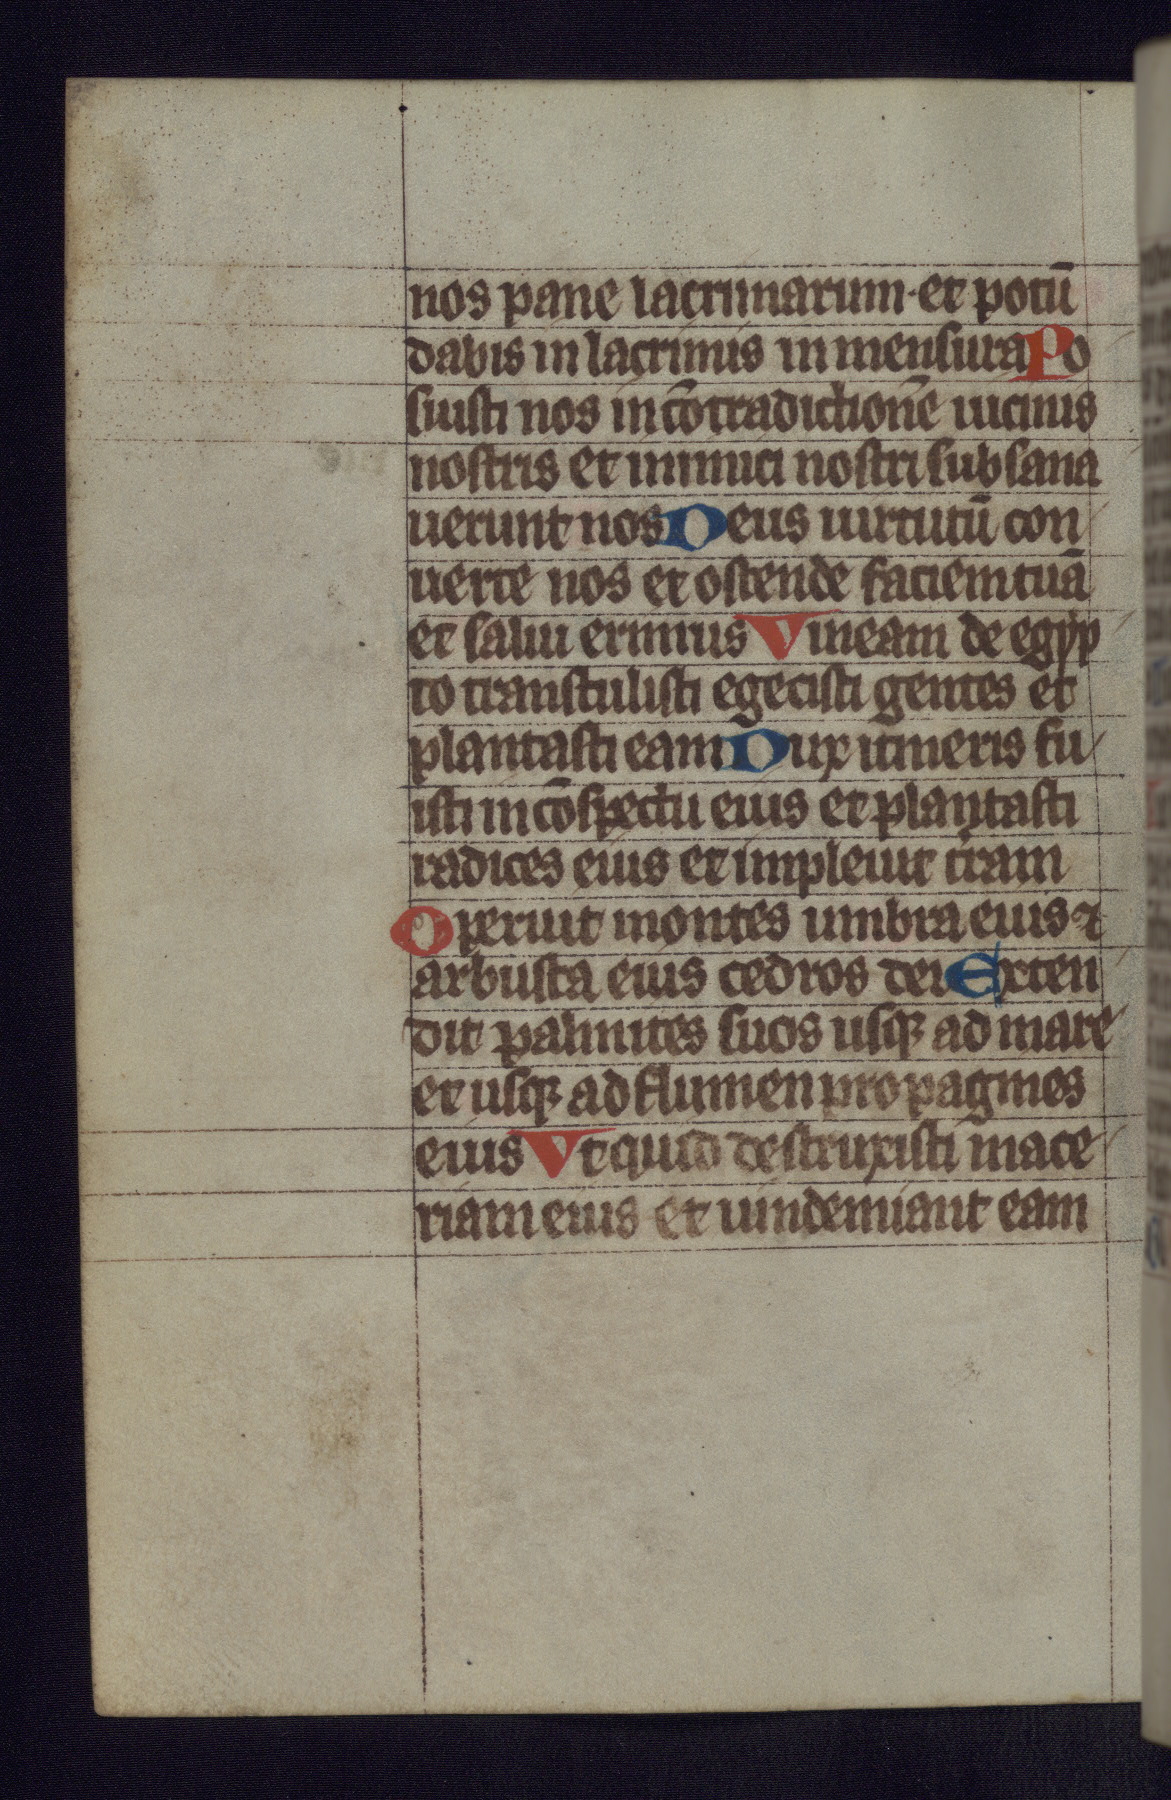 nos pane lacrimarum· et potū
dabis in lacrimis in mensura Po
suisti nos in cōtradictionē uicinis
nostris et inimici nostri subsana
uerunt nos Deus uirtutū con
uerte nos et ostende faciem tuā
et salui erimus Vineam de egyp
to transtulisti egecisti gentes et
plantasti eam Dux itineris fu
isti in cōspectu eius et plantasti
radices eius et impleuit tram
Operuit montes umbra eius ⁊
arbusta eius cedros dei Exten
dit palmites suos usqꝫ ad mare
et usqꝫ ad flumen propagines
eius Vt quid destruxisti mace
riam eius et uindemiant eam